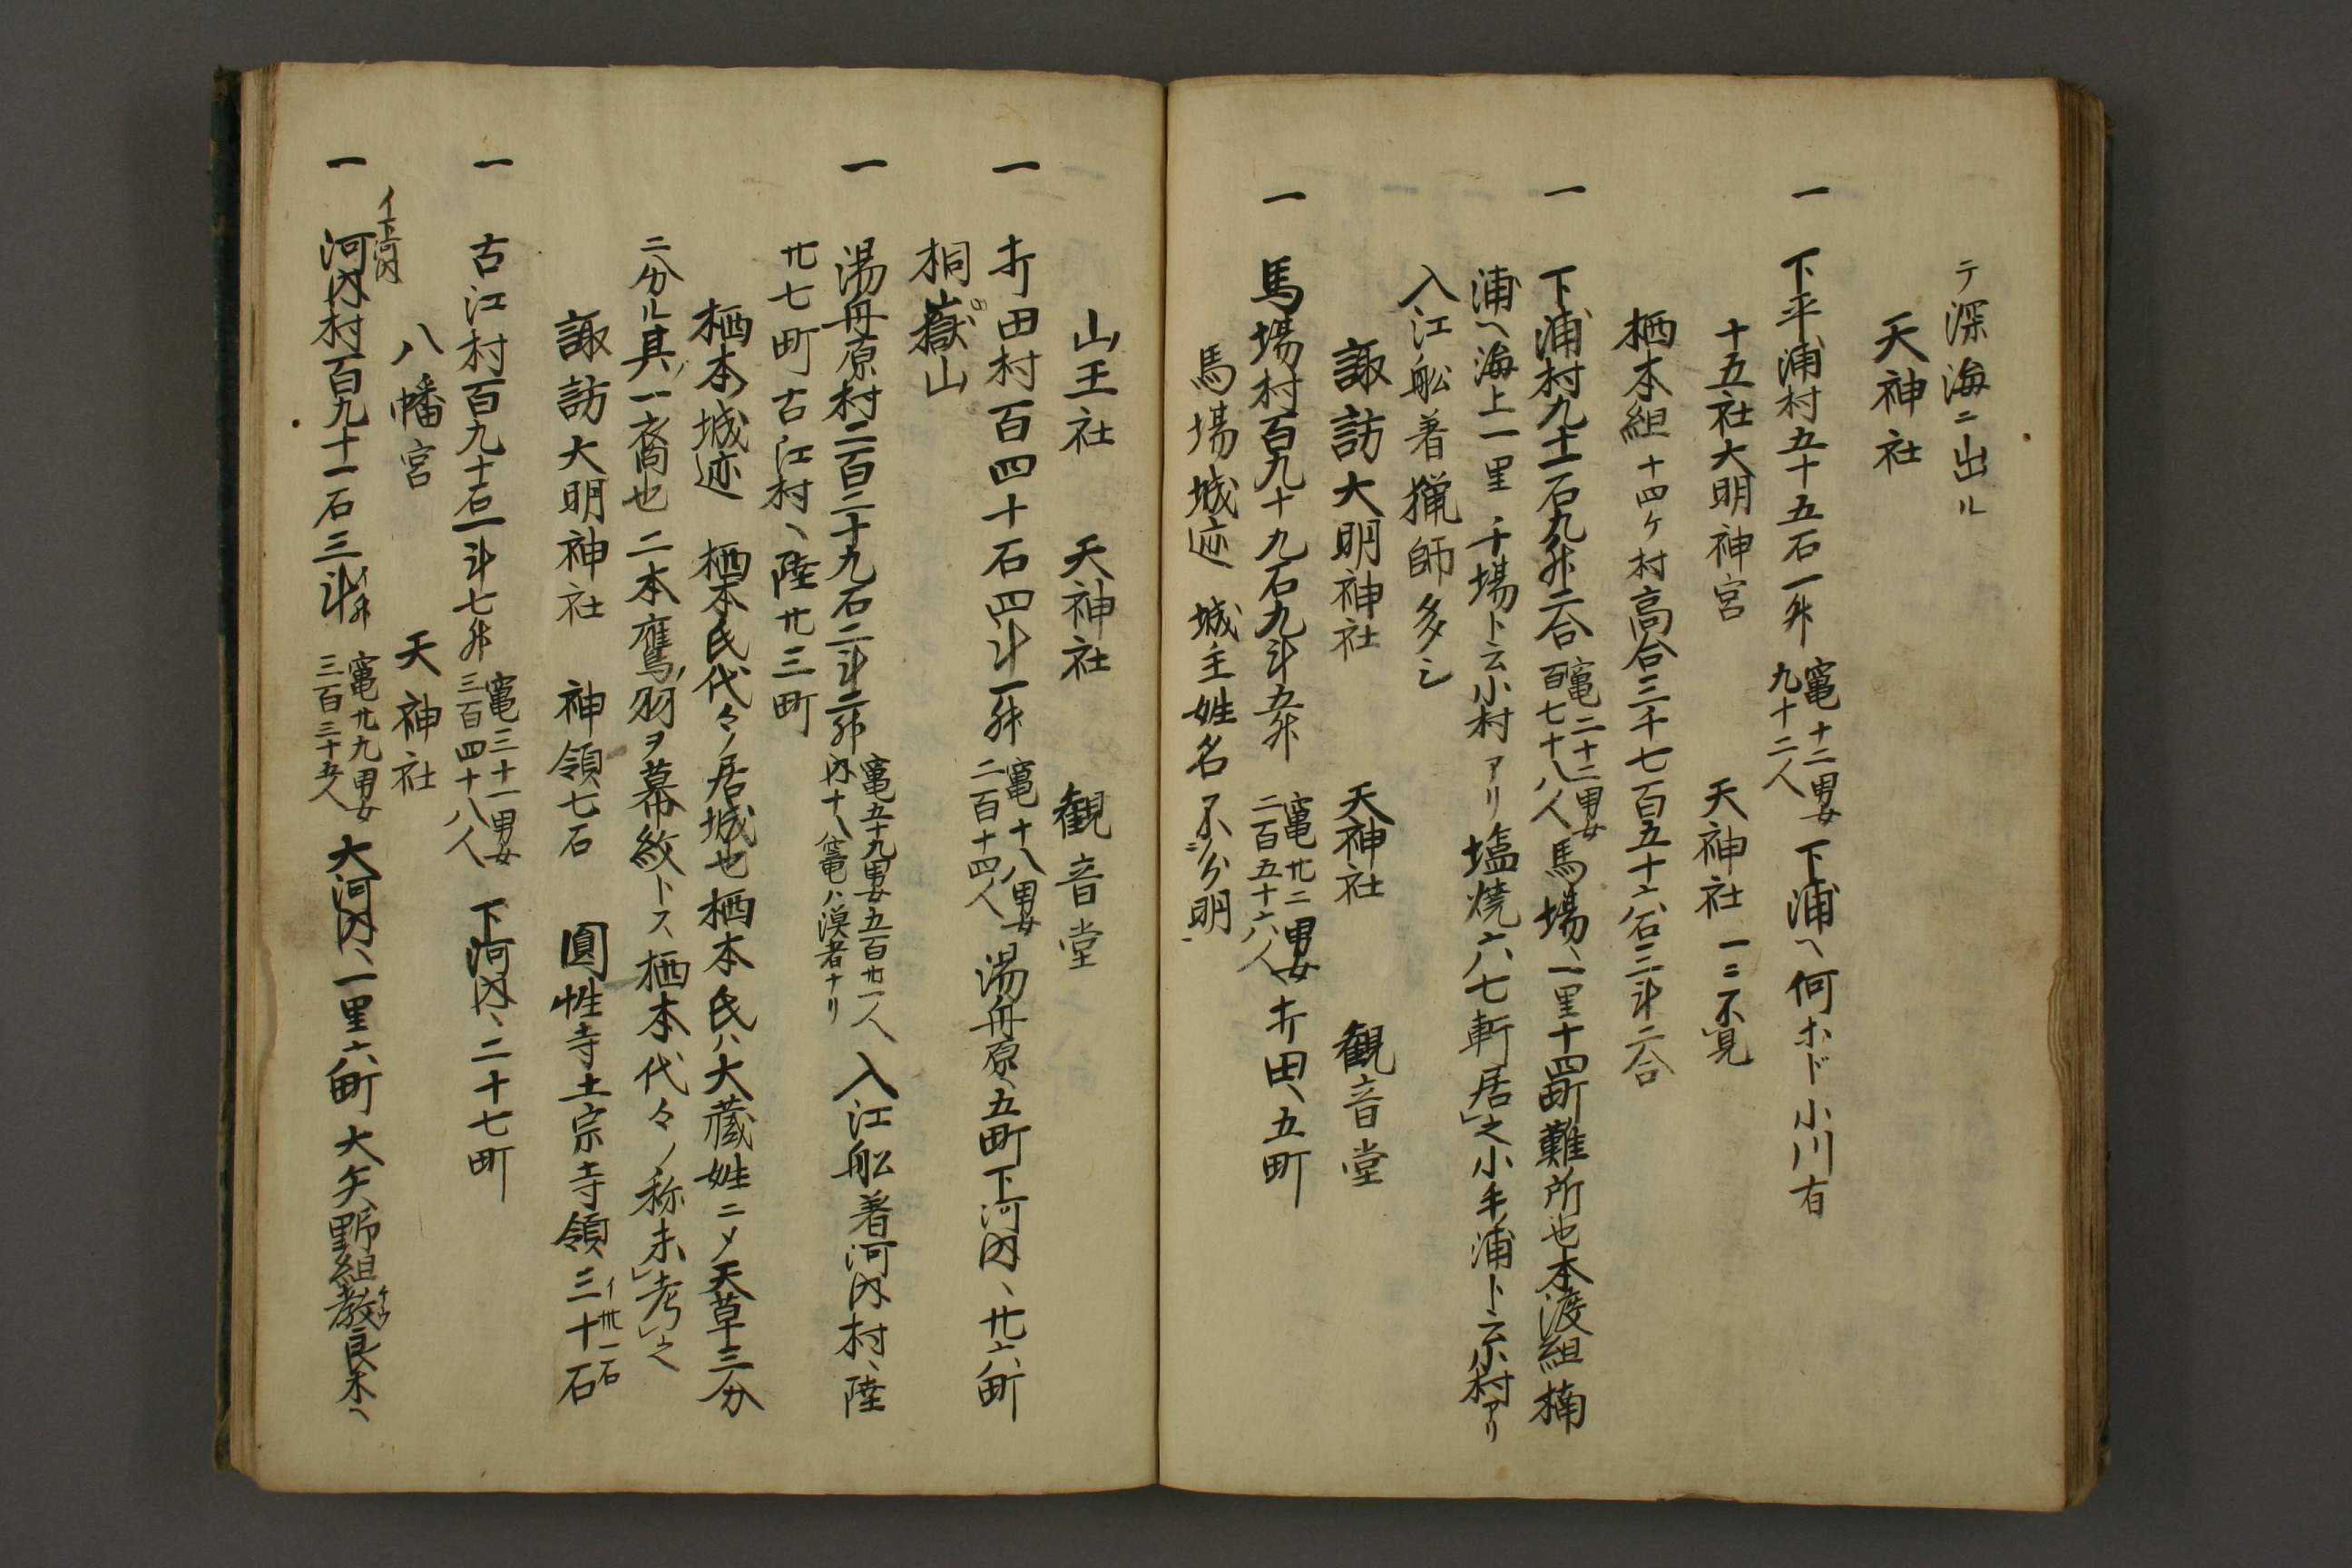 テ深海ニ出ル
天神社
一 下平浦村五十五石一升 竃十二男女九十二人 下浦ヘ何ホド小川有
十五社大明神宮 天神社 一ニ不見
栖本組 十四ケ村 高合三千七百五十六石二斗二合
一 下浦村九十一石九升二合 竃二十二男女百七十八人 馬場ヘ一里十四町難所也本渡組楠
浦ヘ海上一里 千場ト云小村アリ塩焼六七軒居之小手ノ浦ト云小村アリ
入江舩着猟師多シ
諏訪大明神社 天神社 観音堂
一 馬場村百九十九石九斗五升 竃廿二男女二百五十六人 打田ヘ五町
馬場城迹 城主姓名不分明
山王社 天神社 観音堂
一 打田村百四十石四斗一升 竃十八男女二百十四人 湯舟原ヘ五町下河内ヘ廿六町
桐ノ嶽山
一 湯舟原村二百二十九石二斗二升 竃五十九男女五百廿一人内十八竃ハ漠者ナリ 入江舩着河内村ヘ陸
廿七町古江村ヘ陸廿三町
栖本城迹 栖本氏代々ノ居城也栖本氏ハ大蔵姓ニメ天草三分
二分ル其ノ一裔也二本鷹ノ羽ヲ幕紋トス栖本代々ノ称未考之
諏訪大明神社 神領七石 圓性寺土宗寺領三十石 イ卅一石
一 古江村百九十石一斗七升 竃三十一男女三百四十八人 下河内ヘ二十七町
八幡宮 天神社
イ下河内
一 河内村百九十一石三斗 イ升 竃廿九男女三百三十五人 大河内ヘ一里六町 大矢野組教良木ヘ